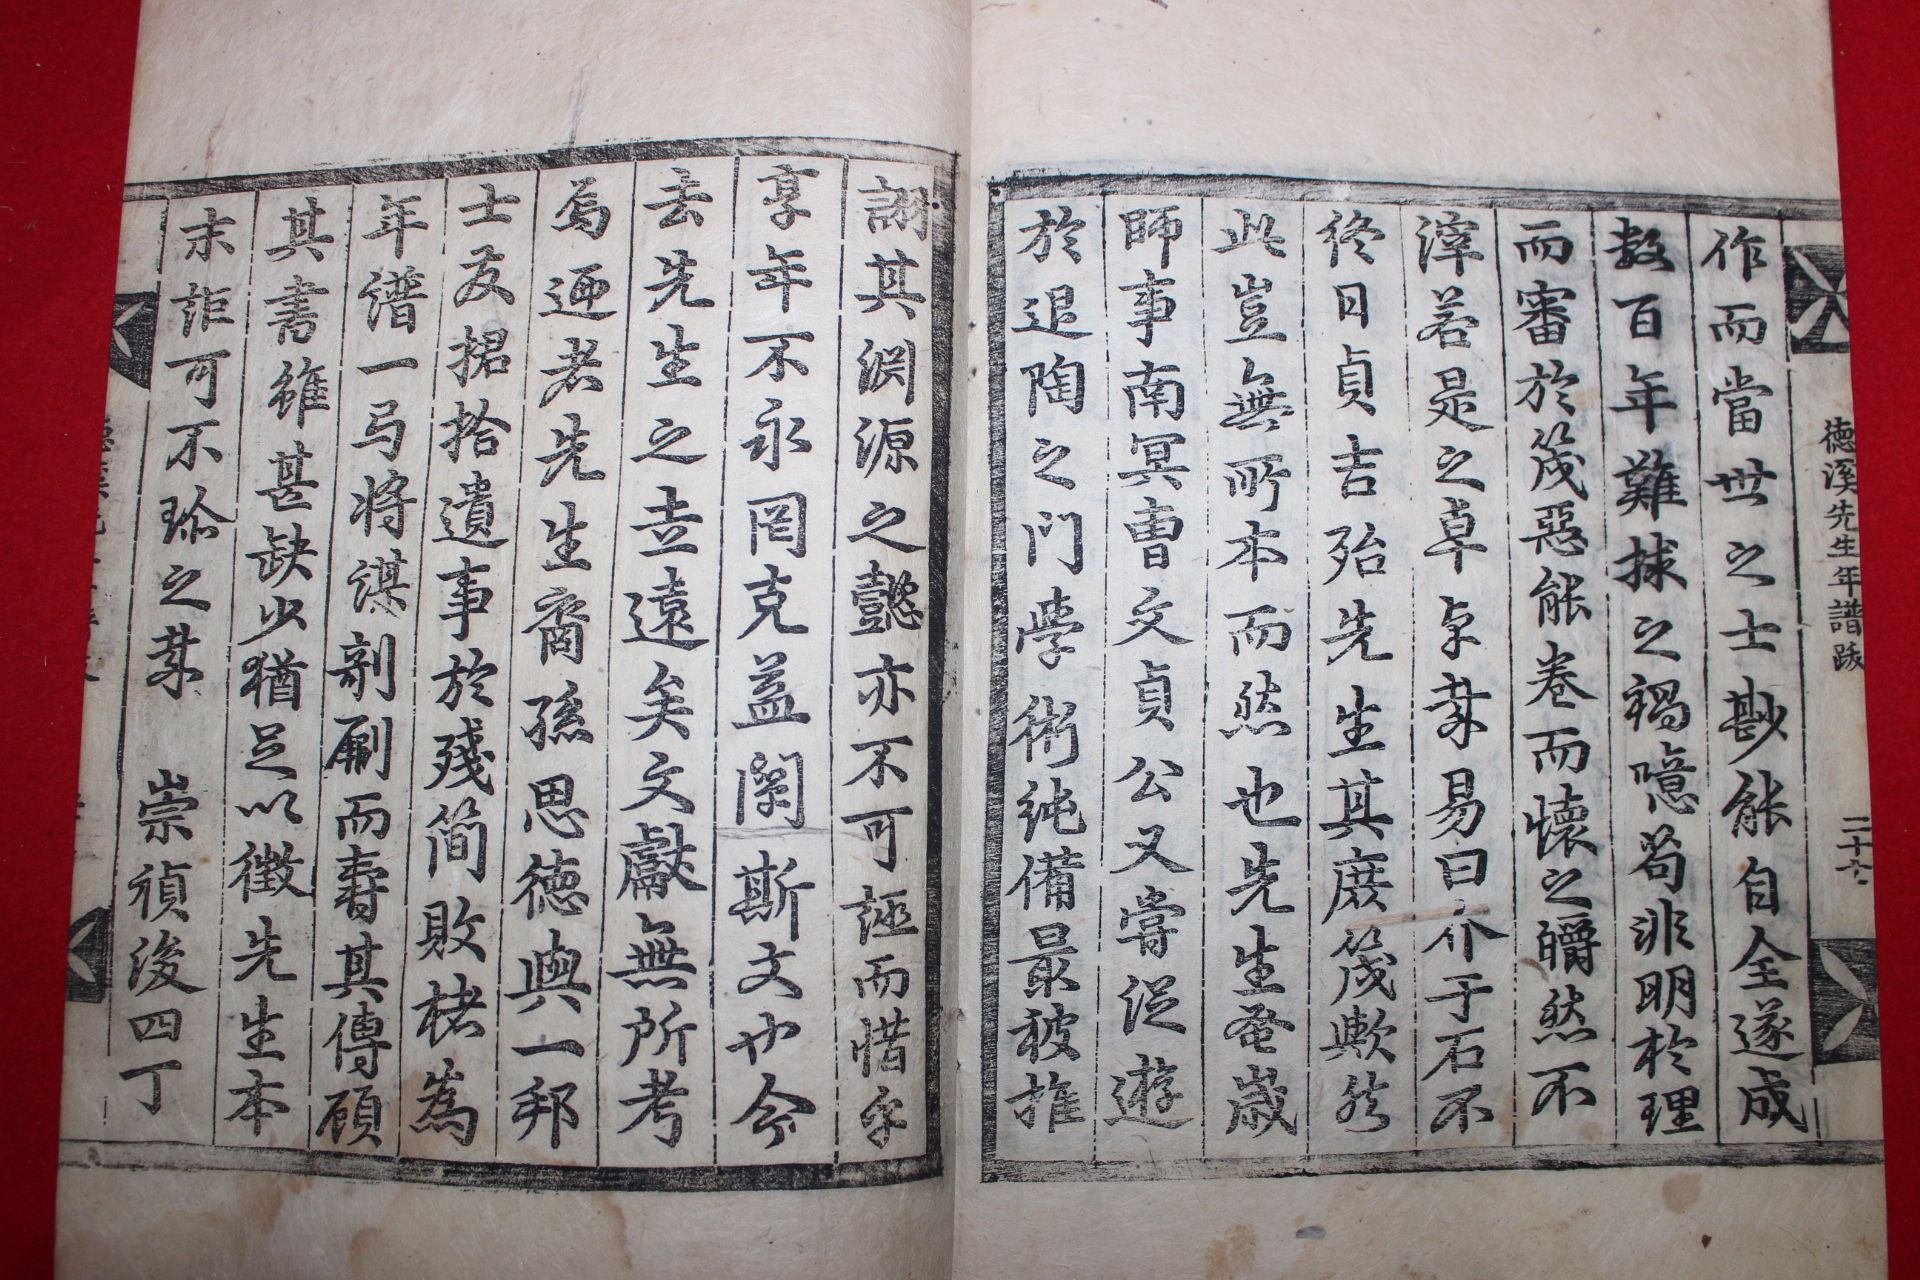 德溪先生年譜跋
二十六
作而當世之士尠能自全遂成
数百年難捄之禍噫苟非明於理
而審於幾惡能卷而懷之皭然不
滓若是之卓卓哉易曰介于石不
終日貞吉殆先生其庶幾歟然
此豈無所本而然也先生蚤歲
師事南冥曺文貞公又嘗從遊
於退陶之門學術純備最被推
詡其淵源之懿亦不可誣而惜乎
享年不永罔克益闡斯文也今
去先生之世遠矣文獻無所考
焉迺者先生裔孫思德與一邦
士友捃拾遺事於殘簡敗楮爲
年譜一弓將謀剞劂而壽其傳顧
其書雖甚缺少猶足以徵先生本
末詎可不珍之哉 崇禎後四丁